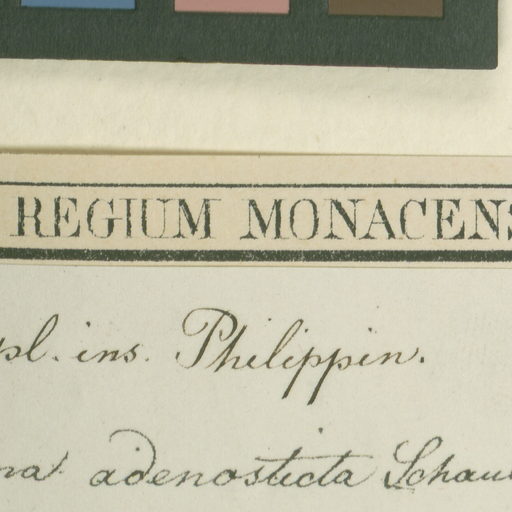 REGIUM MONACENS
pl. ins. Philippin.
na adenosticta Schau